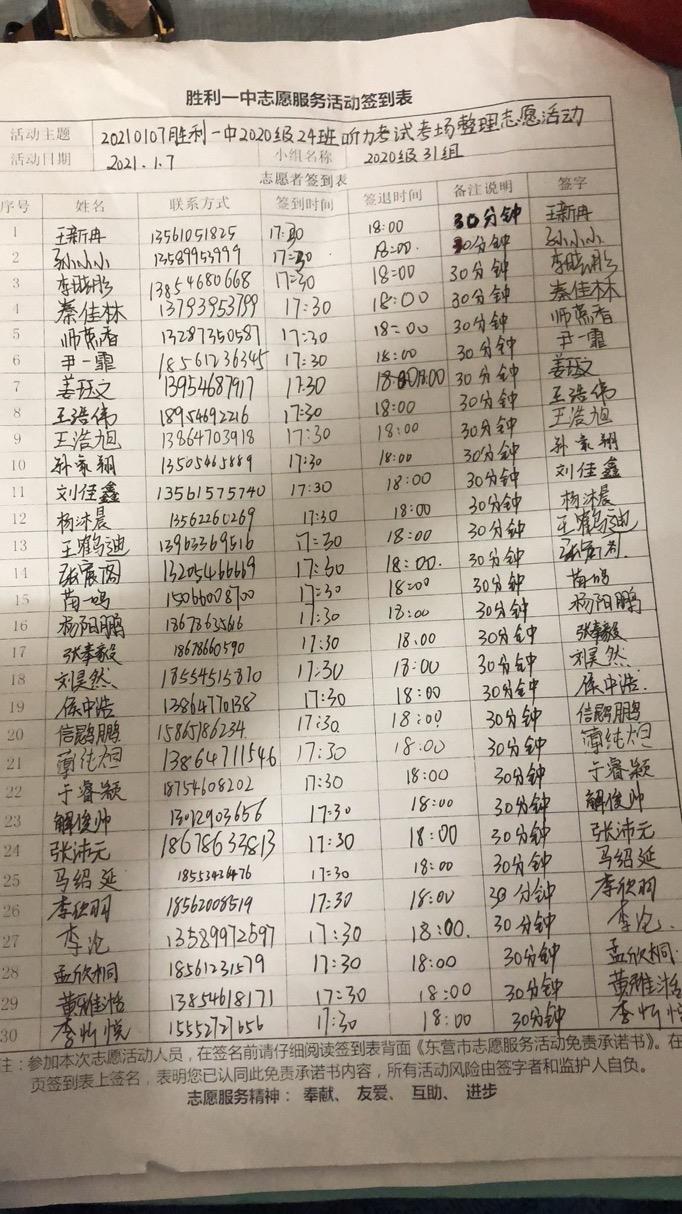 胜利一中志愿服务活动签到表
活动主题 20210107胜利一中2020级24班听力考试考场整理志愿活动
活动日期 2021.1.7 小组名称 2020级31组
志愿者签到表
序号 姓名 联系方式 签到时间 签退时间 备注说明 签字
1 王新冉 13561051825 17:30 18:00 30分钟 王新冉
2 孙小小 13589953999 17:30 18:00 30分钟 孙小小
3 李晓彤 13854680668 17:30 18:00 30分钟 李晓彤
4 秦佳林 13793953799 17:30 18:00 30分钟 秦佳林
5 师蕊香 13287350587 17:30 18:00 30分钟 师蕊香
6 尹一霏 18561236345 17:30 18:00 30分钟 尹一霏
7 姜珏文 13954687917 17:30 18:00 30分钟 姜珏文
8 王浩伟 18954692216 17:30 18:00 30分钟 王浩伟
9 王浩旭 13864703918 17:30 18:00 30分钟 王浩旭
10 孙家翔 13505465889 17:30 18:00 30分钟 孙家翔
11 刘佳鑫 13561575740 17:30 18:00 30分钟 刘佳鑫
12 杨沐晨 13562260269 17:30 18:00 30分钟 杨沐晨
13 王鹤迪 13963369516 17:30 18:00 30分钟 王鹤迪
14 13205466669 17:30 18:00. 30分钟
15 苗一鸣 15066008700 17:30 18:00 30分钟 苗一鸣
16 杨阳鹏 18678655616 17:30 18:00 30分钟 杨阳鹏
17 张奉毅 18678660590 17:30 18:00 30分钟 张奉毅
18 刘昊然 18554515870 17:30 18:00 30分钟 刘昊然
19 侯中浩 13864770138 17:30 18:00 30分钟 侯中浩.
20 信鹍鹏 15865186234 17:30 18:00 30分钟 信鹍鹏
21 蔺纯旭 13864711546 17:30 18:00 30分钟 蔺纯旭
22 于睿颖 18754608202 17:30 18:00 30分钟 于睿颖
23 解俊帅 13012903656 17:30 18:00 30分钟 解俊帅
24 张沛元 18678633813 17:30 18:00 30分钟 张沛元
25 马绍延 18553436476 17:30 18:00 30分钟 马绍延
26 李欣羽 18562008519 17:30 18:00 30分钟 李欣羽
27 李沦 13589972597 17:30 18:00. 30分钟 李沦.
28 孟欣桐 18561231579 17:30 18:00 30分钟 孟欣桐.
29 黄雅浩 13854618171 17:30 18:00 30分钟 黄雅浩
30 李忻悦 15552727656 17:30 18:00 30分钟 李忻悦
注：参加本次志愿活动人员，在签名前请仔细阅读签到表背面《东营市志愿服务活动免责承诺书》。在
页签到表上签名，表明您已认同此免责承诺书内容，所有活动风险由签字者和监护人自负。
志愿服务精神： 奉献、 友爱、 互助、 进步